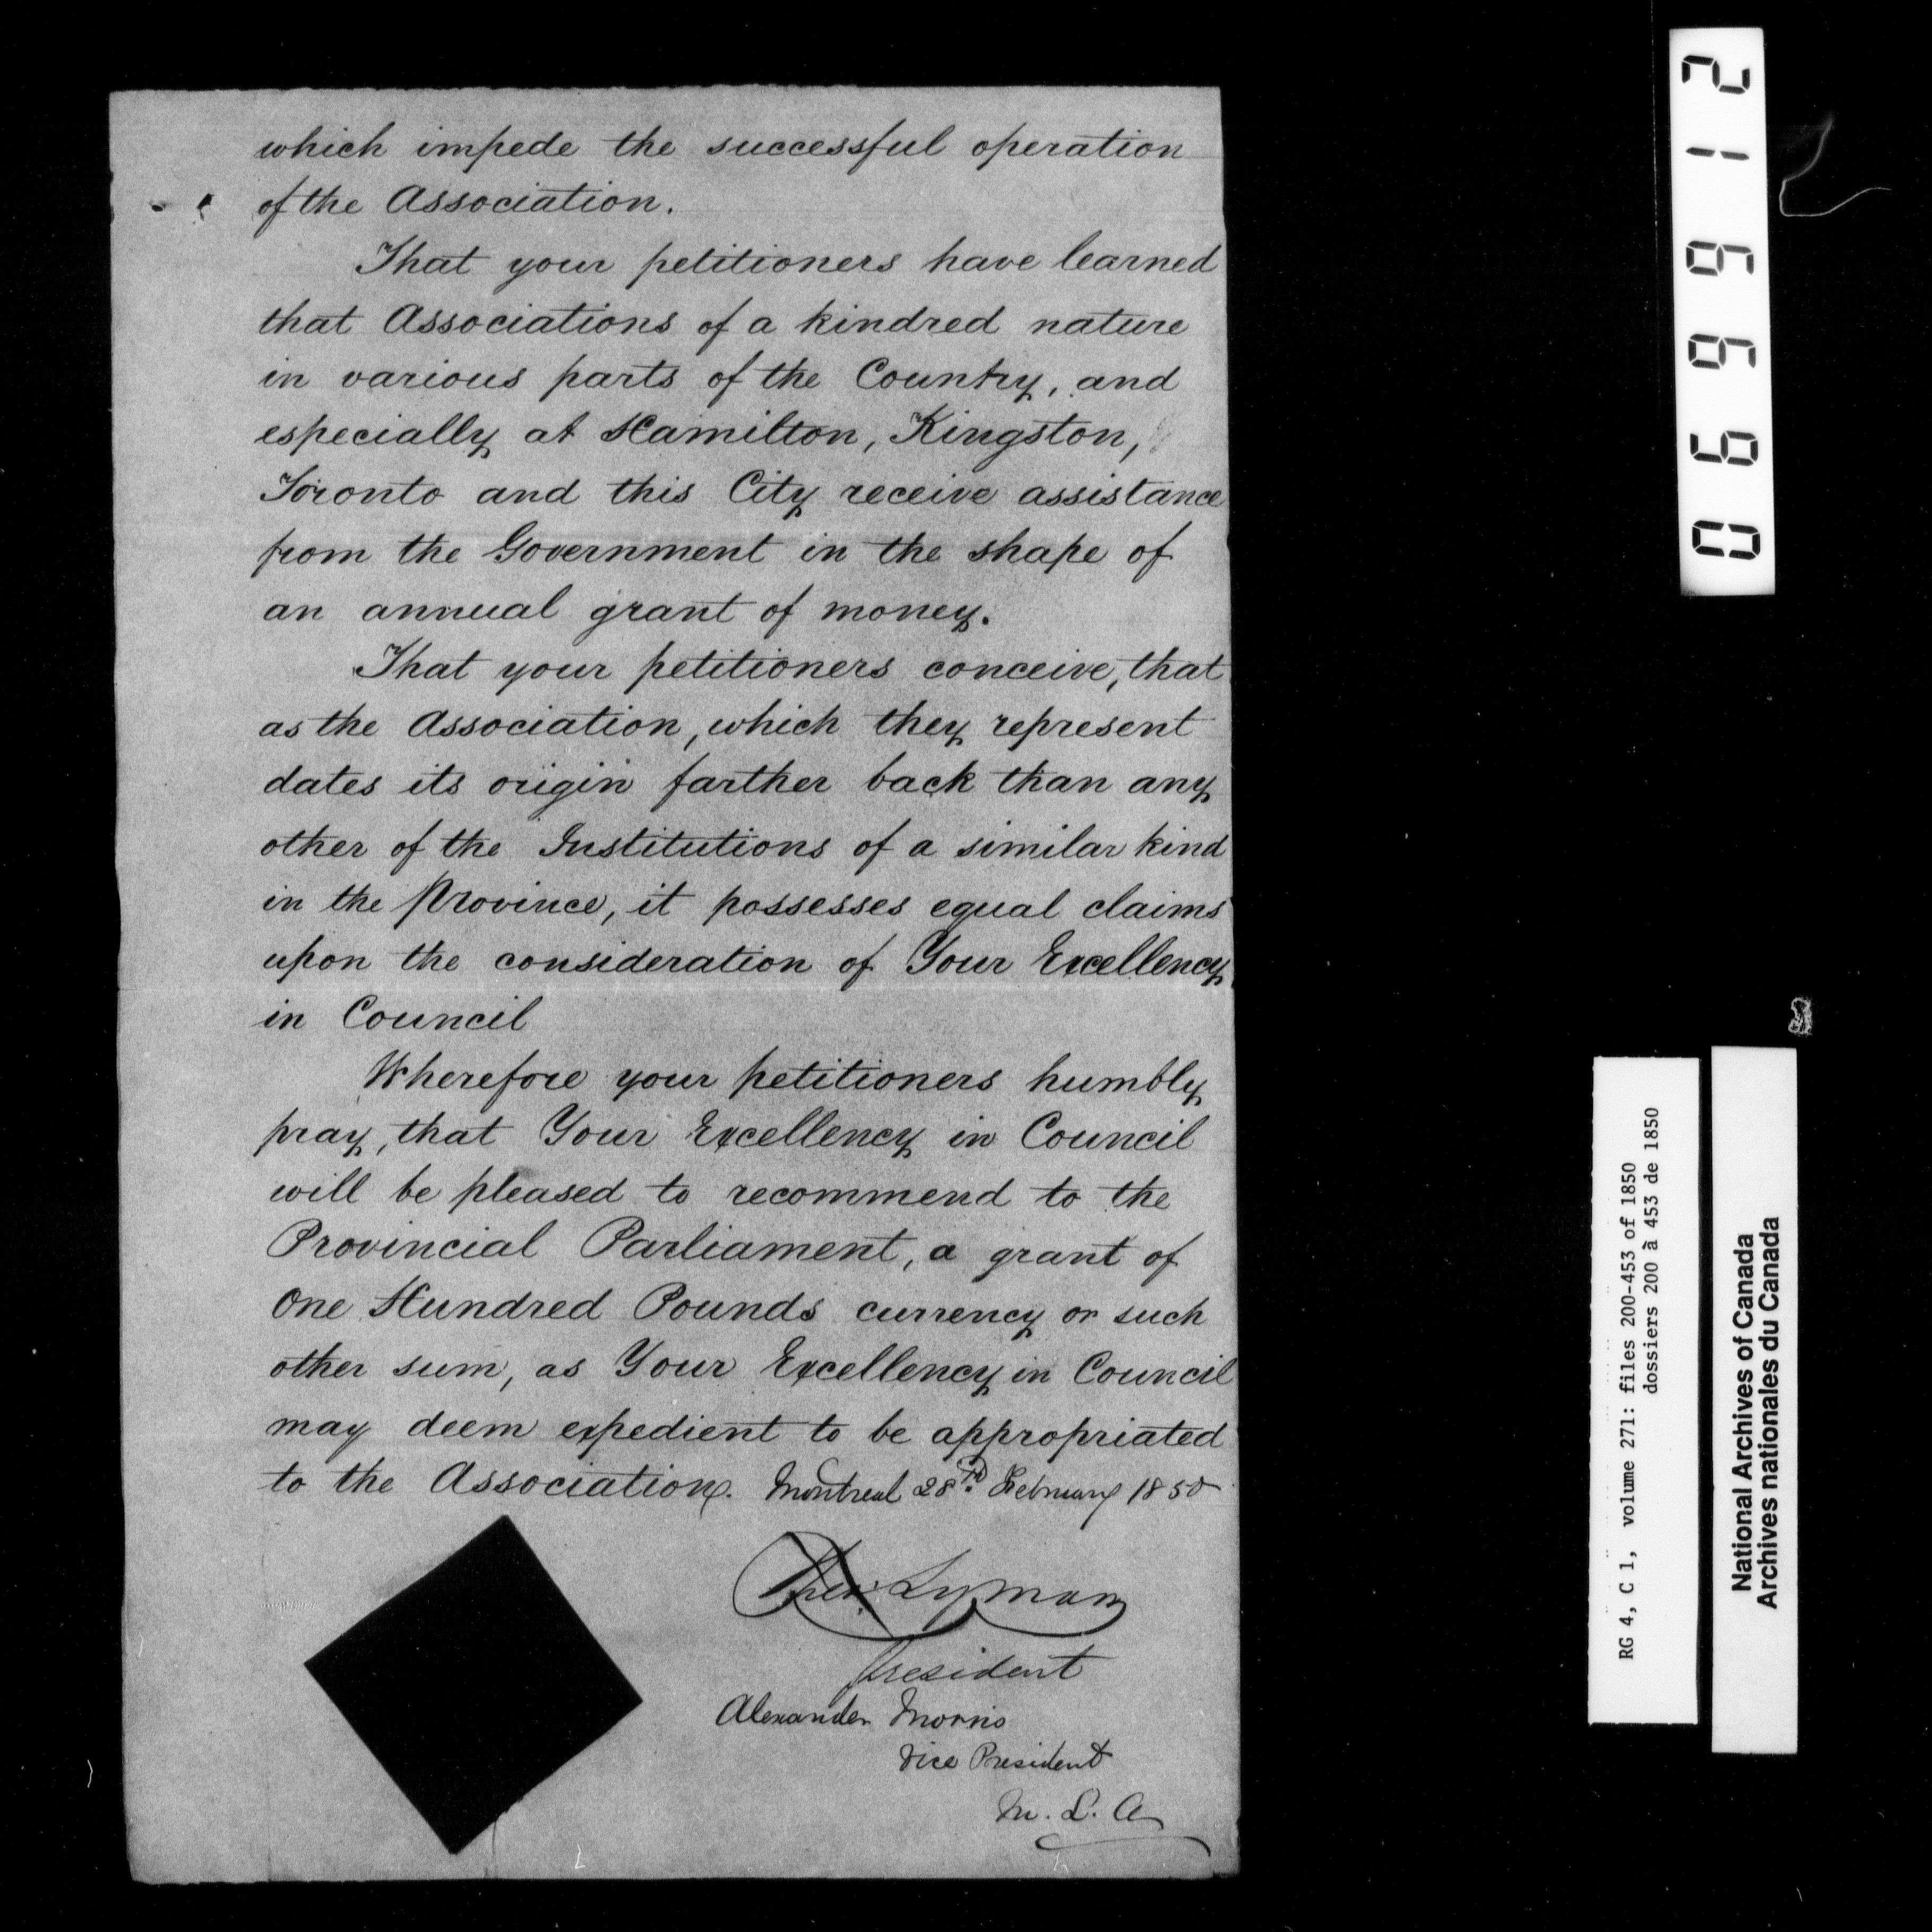 which impede the successful operation
of the Association.
That your petitioners have learned
that Associations of a kindred nature
in various parts of the Country, and
especially at Hamilton, Kingston,
Toronto and this City receive assistance
from the Government in the shape of
an annual grant of money.
That your petitioners conceive, that
as the Association, which they represent
dates its origin farther back than any
other of the Institutions of a similar kind
in the Province, it possesses equal claims
upon the consideration of Your Excellency
in Council
Wherefore your petitioners humbly
pray, that Your Excellency in Council
will be pleased to recommend to the
Provincial Parliament, a grant of
One Hundred Pounds currency or such
other sum, as Your Excellency in Council
may deem expedient to be appropriated
to the Association. Montreal 28th February 1850
Lyman
President
Alexander Morris
Vice President
M. L. A
069912
RG 4, C 1, volume 271: files 200-453 of 1850
dossiers 200 à 453 de 1850
National Archives of Canada
Archives nationales du Canada